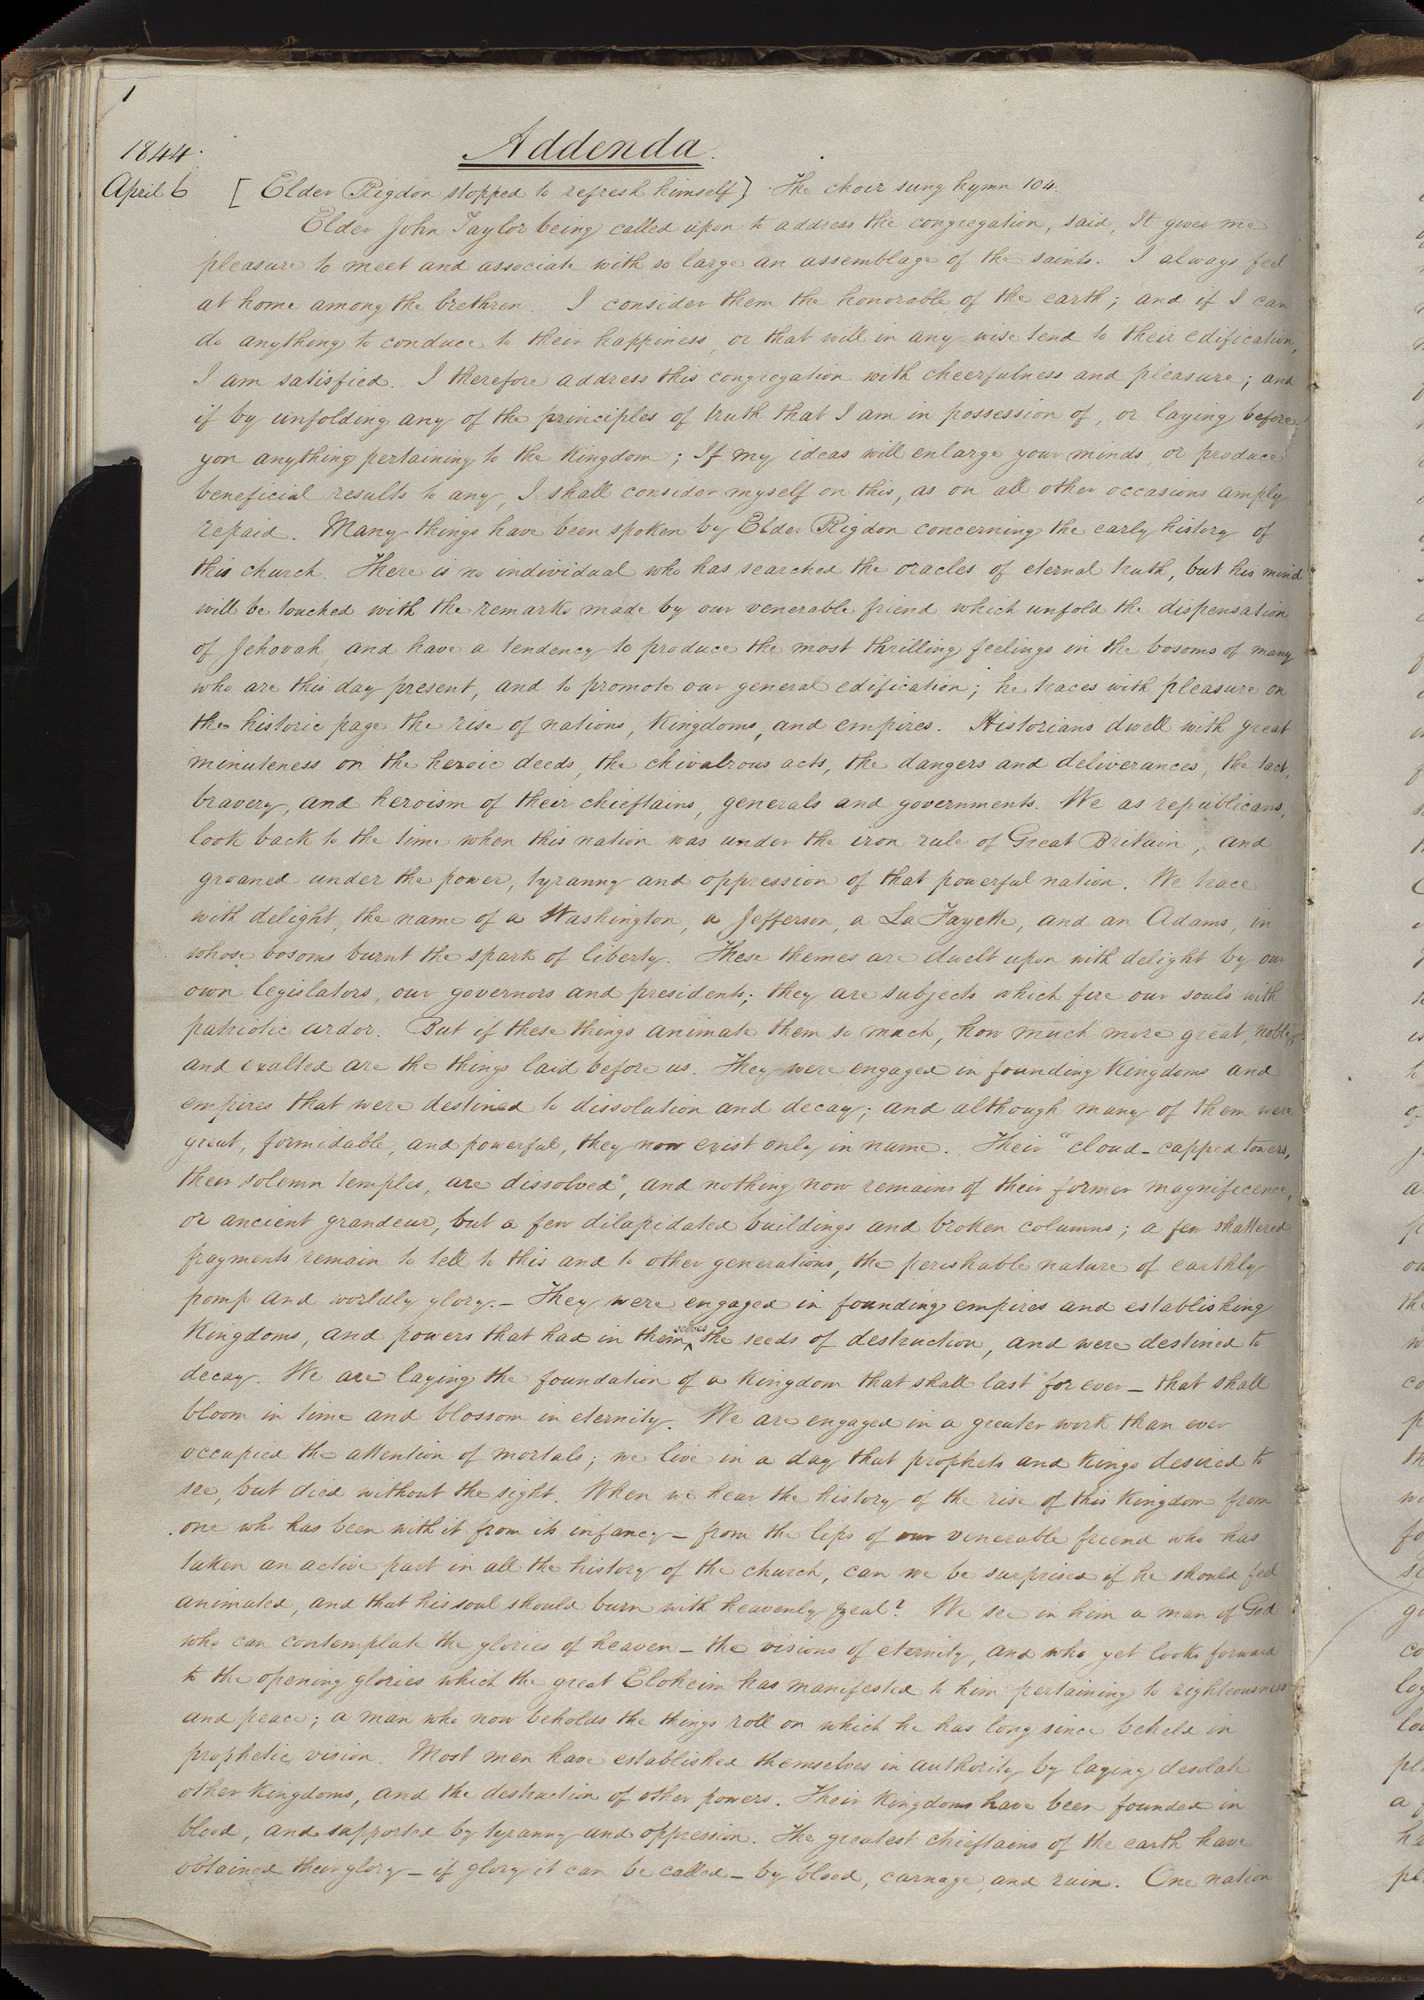 1
Addenda.
1844.
April 6 [Elder Rigdon stopped to refresh himself] The choir sung hymn 104.
Elder John Taylor being called upon to address the congregation, said, It gives me
pleasure to meet and associate with so large an assemblage of the saints. I always feel
at home among the brethren. I consider them the honorable of the earth; and if I can
do anything to conduce to their happiness, or that will in any wise tend to their edification,
I am satisfied. I therefore address this congregation with cheerfulness and pleasure; and
if by unfolding any of the principles of truth that I am in possession of, or laying before
you anything pertaining to the Kingdom; If my ideas will enlarge your minds, or produce
beneficial results to any, I shall consider myself on this, as on all other occasions amply
repaid. Many things have been spoken by Elder Rigdon concerning the early history of
this church. There is no individual who has searched the oracles of eternal truth, but his mind
will be touched with the remarks made by our venerable friend which unfold the dispensation
of Jehovah, and have a tendency to produce the most thrilling feelings in the bosoms of many
who are this day present, and to promote our general edification; he traces with pleasure on
the historic page the rise of nations, kingdoms, and empires. Historians dwell with great
minuteness on the heroic deeds, the chivalrous acts, the dangers and deliverances, the tact,
bravery, and heroism of their chieftains, generals and governments. We as republicans,
look back to the time when this nation was under the iron rule of Great Britain, and
groaned under the power, tyranny and oppression of that powerful nation. We trace
with delight, the name of a Washington, a Jefferson, a La Fayette, and an Adams, in
whose bosoms burnt the spark of liberty. These themes are dwelt upon with delight by our
own legislators, our governors and presidents; they are subjects which fire our souls with
patriotic ardor. But if these things animate them so much, how much more great, noble,
and exalted are the things laid before us. They were engaged in founding Kingdoms and
empires that were destined to dissolution and decay; and although many of them were
great, formidable, and powerful, they now exist only in name. Their "cloud-capped towers,
their solemn temples, are dissolved", and nothing now remains of their former magnificence,
or ancient grandeur, but a few dilapidated buildings and broken columns; a few shattered
fragments remain to tell to this and to other generations, the perishable nature of earthly
pomp and worldly glory.- They were engaged in founding empires and establishing
Kingdoms, and powers that had in themselves the seeds of destruction, and were destined to
decay. We are laying the foundation of a Kingdom that shall last for ever - that shall
bloom in time and blossom in eternity. We are engaged in a greater work than ever
occupied the attention of mortals; we live in a day that prophets and Kings desired to
see, but died without the sight. When we hear the history of the rise of this Kingdom from
one who has been with it from its infancy - from the lips of our venerable friend who has
taken an active part in all the history of the church, can we be surprised if he should feel
animated, and that his soul should burn with heavenly zeal? We see in him a man of God
who can contemplate the glories of heaven - the visions of eternity, and who yet looks forward
to the opening glories which the great Eloheim has manifested to him pertaining to righteousness
and peace; a man who now beholds the things roll on which he has long since beheld in
prophetic vision. Most men have established themselves in authority by laying desolate
other Kingdoms, and the destruction of other powers. Their Kingdoms have been founded in
blood, and supported by tyranny and oppression. The greatest chieftains of the earth have
obtained their glory - if glory it can be called - by blood, carnage, and ruin. One nation